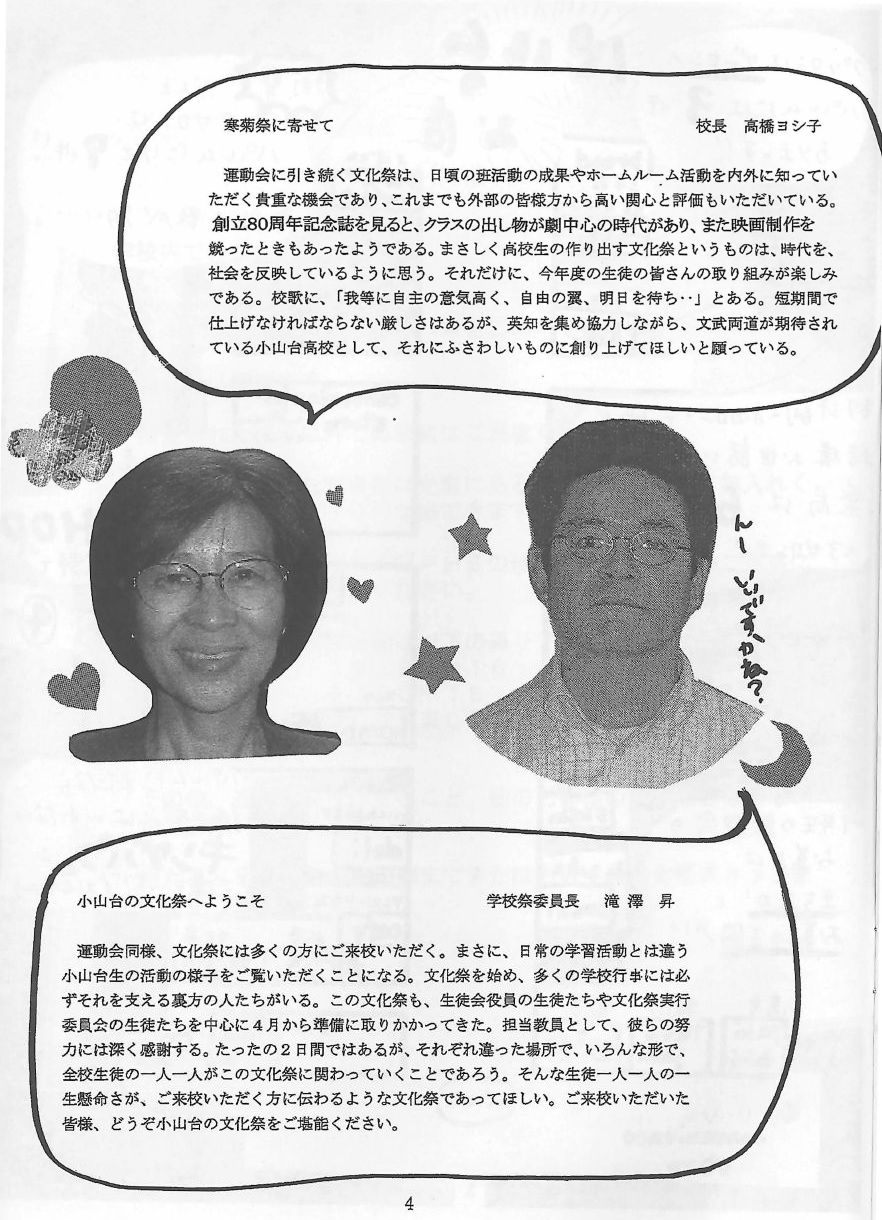 寒菊祭に寄せて　校長　高橋ヨシ子
運動会に引き続く文化祭は、日頃の班活動の成果やホームルーム活動を内外に知ってい
ただく貴重な機会であり、これまでも外部の皆様方から高い関心と評価もいただいている。
創立80周年記念誌を見ると、クラスの出し物が劇中心の時代があり、また映画制作を
競ったときもあったようである。まさしく高校生の作り出す文化祭というものは、時代を、
社会を反映しているように思う。それだけに、今年度の生徒の皆さんの取り組みが楽しみ
である。校歌に、「我等に自主の意気高く、自由の翼、明日を待ち‥」とある。短期間で
仕上げなければならない厳しさはあるが、英知を集め協力しながら、文武両道が期待され
ている小山台高校として、それにふさわしいものに創り上げてほしいと願っている。
んー いいですかね？
小山台の文化祭へようこそ　学校祭委員長　滝澤　昇
運動会同様、文化祭には多くの方にご来校いただく。まさに、日常の学習活動とは違う
小山台生の活動の様子をご覧いただくことになる。文化祭を始め、多くの学校行事には必
ずそれを支える裏方の人たちがいる。この文化祭も、生徒会役員の生徒たちや文化祭実行
委員会の生徒たちを中心に４月から準備に取りかかってきた。担当教員として、彼らの努
力には深く感謝する。たったの２日間ではあるが、それぞれ違った場所で、いろんな形で、
全校生徒の一人一人がこの文化祭に関わっていくことであろう。そんな生徒一人一人の一
生懸命さが、ご来校いただく方に伝わるような文化祭であってほしい。ご来校いただいた
皆様、どうぞ小山台の文化祭をご堪能ください。
4